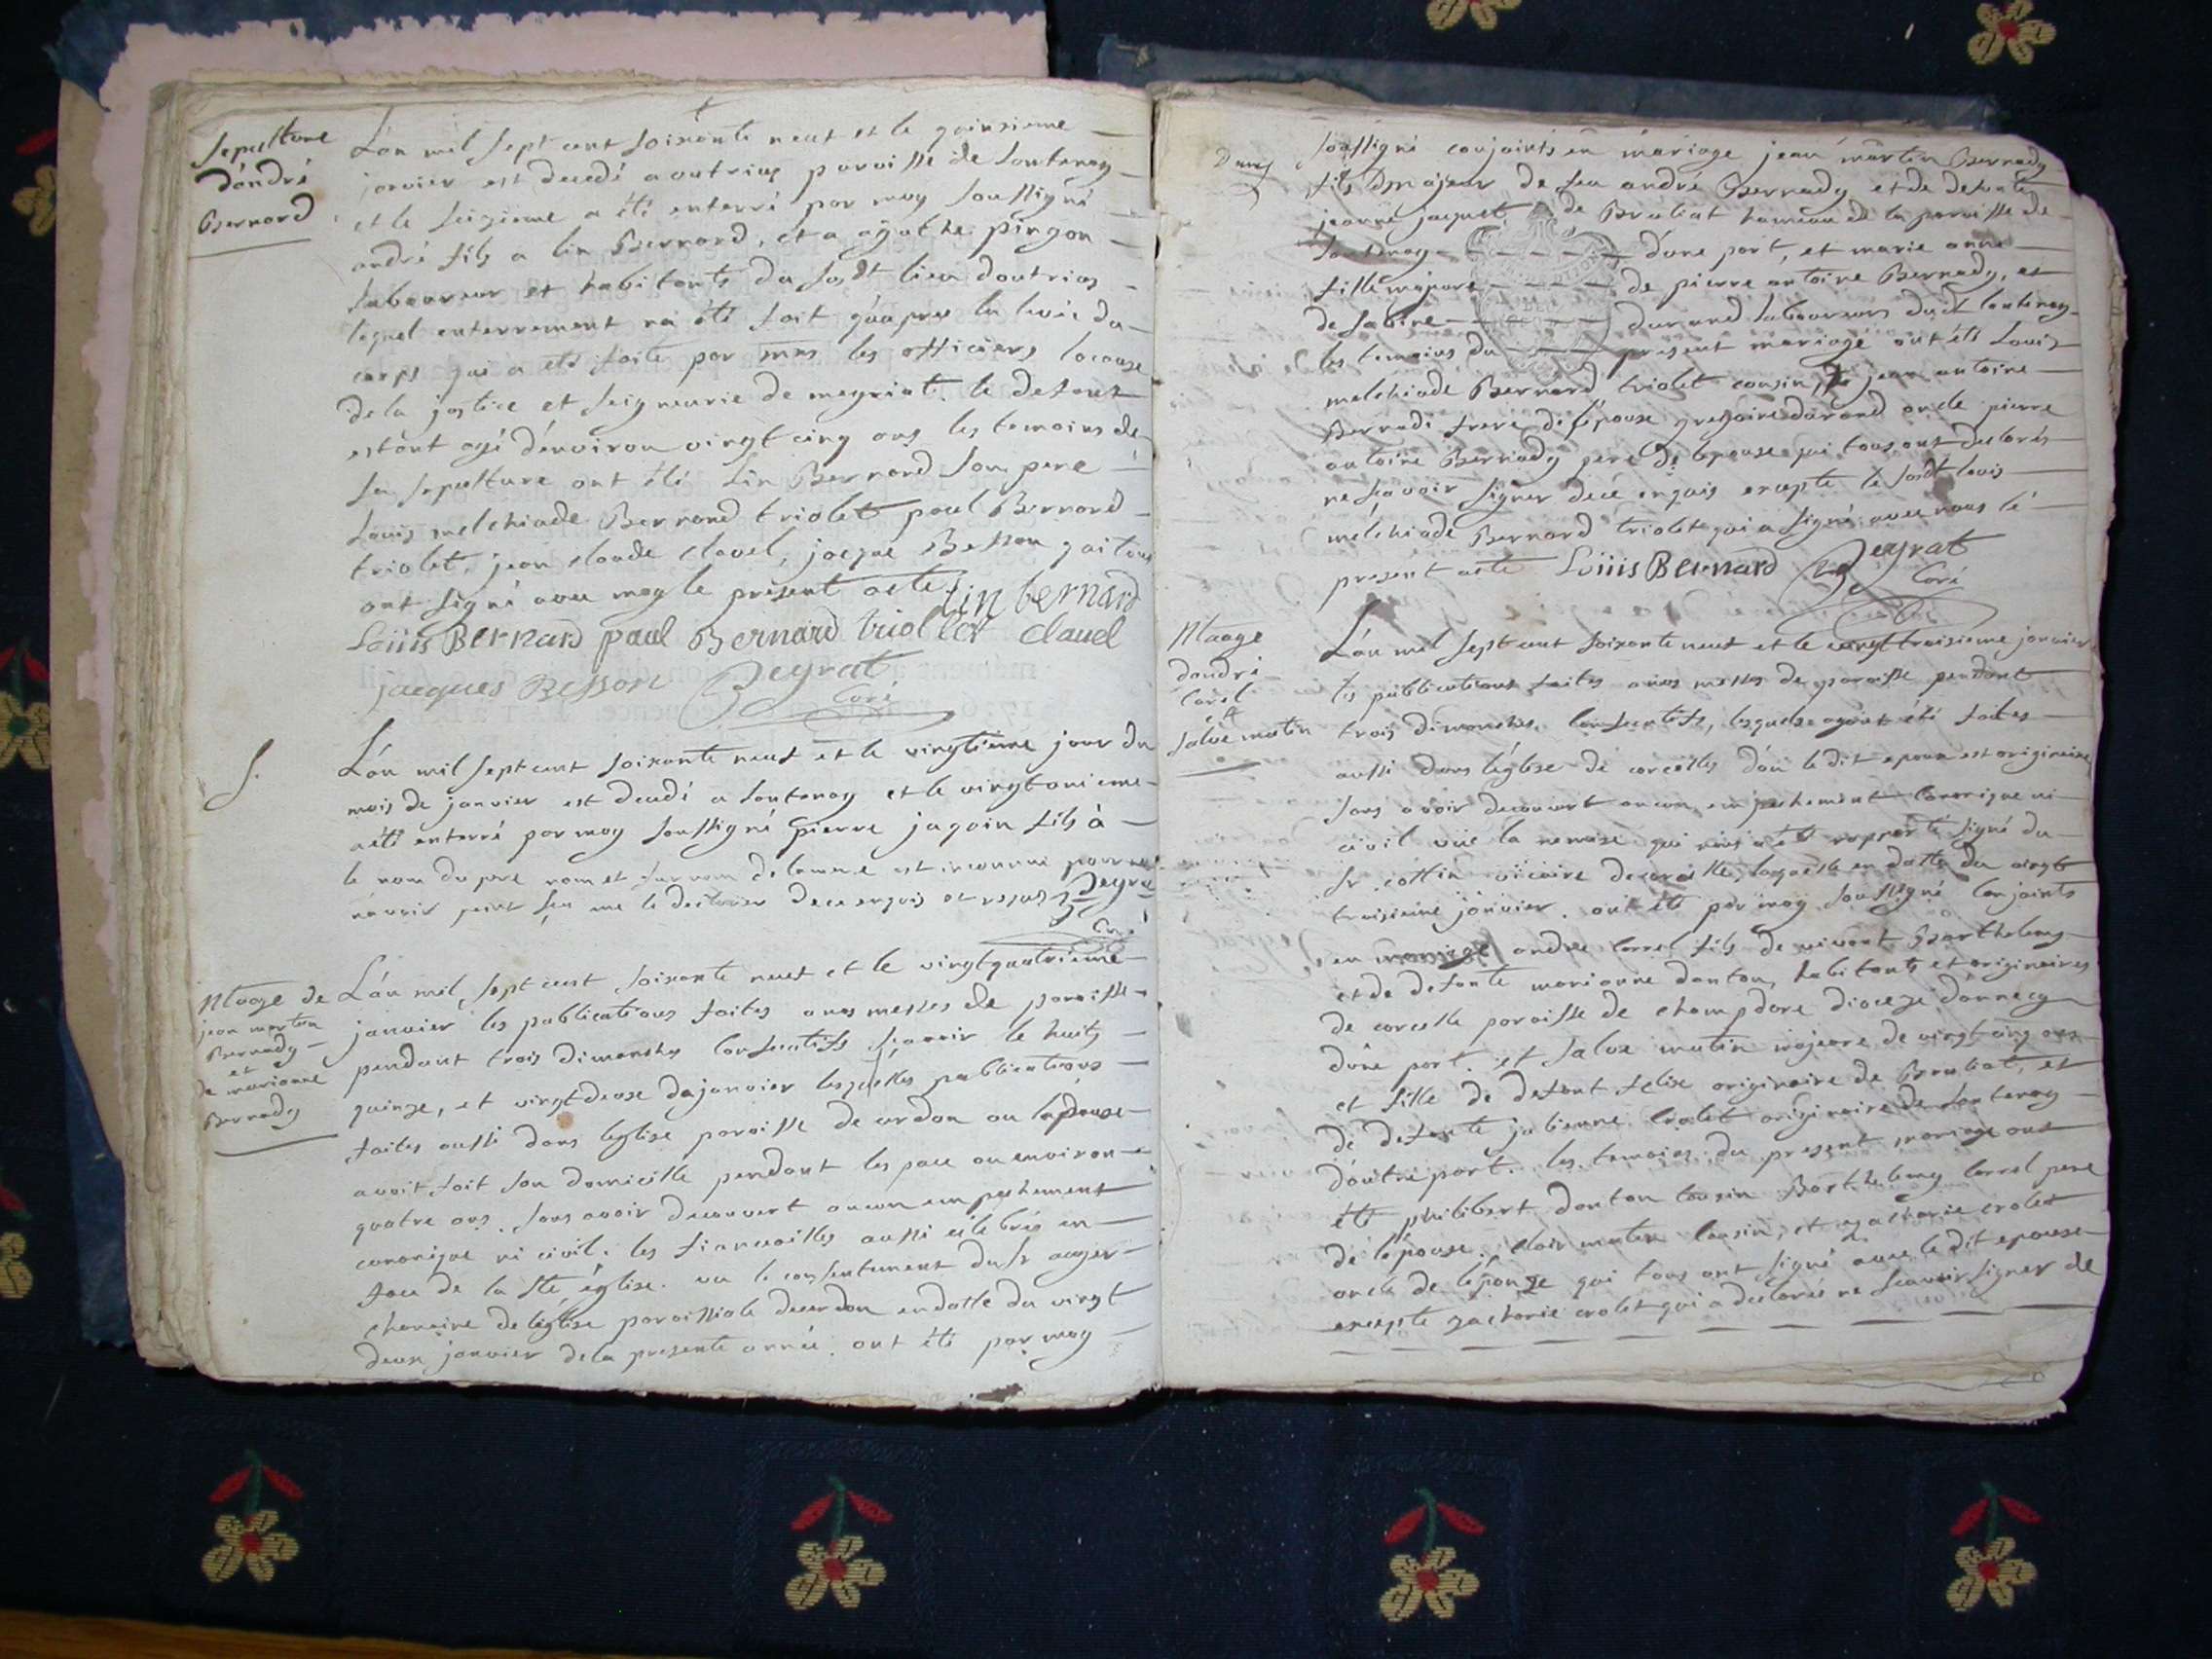 Sepulture
d'andré
Bernard
L'an mil sept cent soixante neuf et le quinsieme
janvier est decedé a outriaz paroisse de Lantenay
et le seizieme a été enterré par moy soussigné
andré fils a lin Bernard, et a agathe pingon
laboureur et habitants du susdt lieu doutriaz
lequel enterrement na été fait qu'apres la levée du
corps qui a été faite par mrs les officiers locaux
de la justice et seigneurie de meyriat. le defunt
estant agé denviron vingt cinq ans les temoins de
sa sepulture ont été lin Bernard son pere
Louis melchiade Bernard triolet paul Bernard
triolet, jean claude clavel, jacque Besson qui tous
ont signé avec moy le present acte lin bernard
Loüis Bernard paul Bernard triollet clauel
jacques Besson Peyrat
Curé
S.
L'an mil sept cent soixante neuf et le vingtieme jour du
mois de janvier est decedé a Lantenay et le vingtunieme
a été enterré par moy soussigné pierre jagoin fils à
le nom du pere nom et surnom de la mere est inconnu pour
n'avoir point sçu me le declarer de ce enquis et requis Peyrat
Curé
Mariage de
jean martin
Bernady
et
de marianne
Bernady
L'an mil sept cent soixante neuf et le vingtquatrieme
janvier les publications faites a nos messes de paroisse
pendant trois dimanches consecutifs sçavoir le huit,
quinze, et vingtdeux de janvier lesquelles publications
faites aussi dans leglise paroisse de cerdon ou lepouse
avoit fait son domicille pendant lespace ou environ
quatre ans. sans avoir decouvert aucun empechement
canonique ni civil. les fiancailles aussi celebrés en
face de la ste église. vu le consentement du sr auger
chanoine de leglise paroissiale de cerdon en datte du vingt
deux janvier de la presente année. ont été par moy
soussigné conjoints en mariage jean martin Bernady
fils majeur de feu andré Bernady et de defunte
jeanne jacquet de Brubiat hameau de la paroisse de
Lantenay d'une part, et marie anne
fille majeure de pierre antoine Bernady, et
de sabine durand laboureurs dudt lantenay
les temoins du present mariage ont été Louis
melchiade Bernard triolet cousin, jean antoine
Bernadi frere de l'épouse gregoire durand oncle pierre
antoine Bernady pere de lepouse qui tous ont declarés
ne sçavoir signer de ce enquis excepté le susdt louis
melchiade Bernard triolet qui a signé avec nous le
present acte Loüis Bernard Peyrat
Curé
Mariage
dandré
Carrel
et
salve matin
L'an mil sept cent soixante neuf et le vingt troisieme janvier
les publications faites a nos messes de paroisse pendant
trois dimanches consecutifs, lesquels ayant été faites
aussi dans l'église de corcelles d'ou le dit epoux est originaire
sans avoir decouvert aucun empechement canonique ni
civil vüe la remise qui nous a été rapporté signé du
sr cottin vicaire de corcelle, laquelle en datte du vingt
troisieme janvier. ont été par moy soussigné conjoints
en mariage andré carrel fils de vivant Barthelemy
et de defunte marianne danton, habitants et originaires
de corcelle paroisse de champdore diocese d'annecy
d'une part. et salve matin majeure de vingt cinq ans
et fille de defunt felix originaire de Brubiat, et
de defunte julienne crolet originaire de Lantenay
d'autre part. les temoins du present mariage ont
été philibert danton cousin Barthelemy carrel pere
de l'épouse. clair matin cousin, et zacharie crolet
oncle de l'épouze qui tous ont signé avec le dit epouse
excepté zacharie crolet qui a declarés ne scavoir signer de